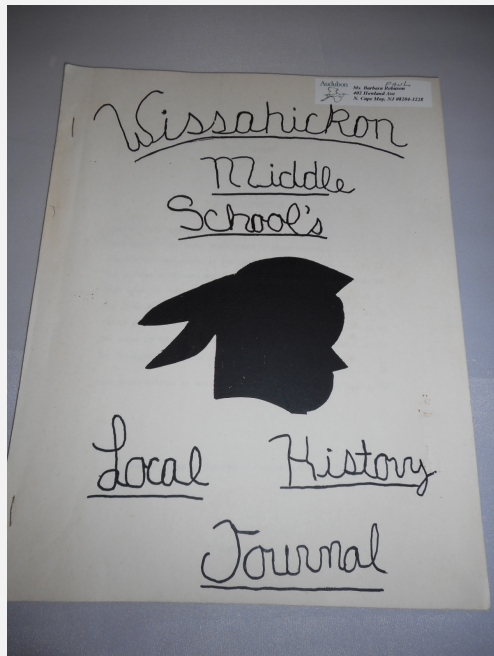 Audubon
Ms. Barbara Robinson
402 Howland Ave
N. Cape May, NJ 08204-3228
Wissahickon
Middle
School's
Local History
Journal